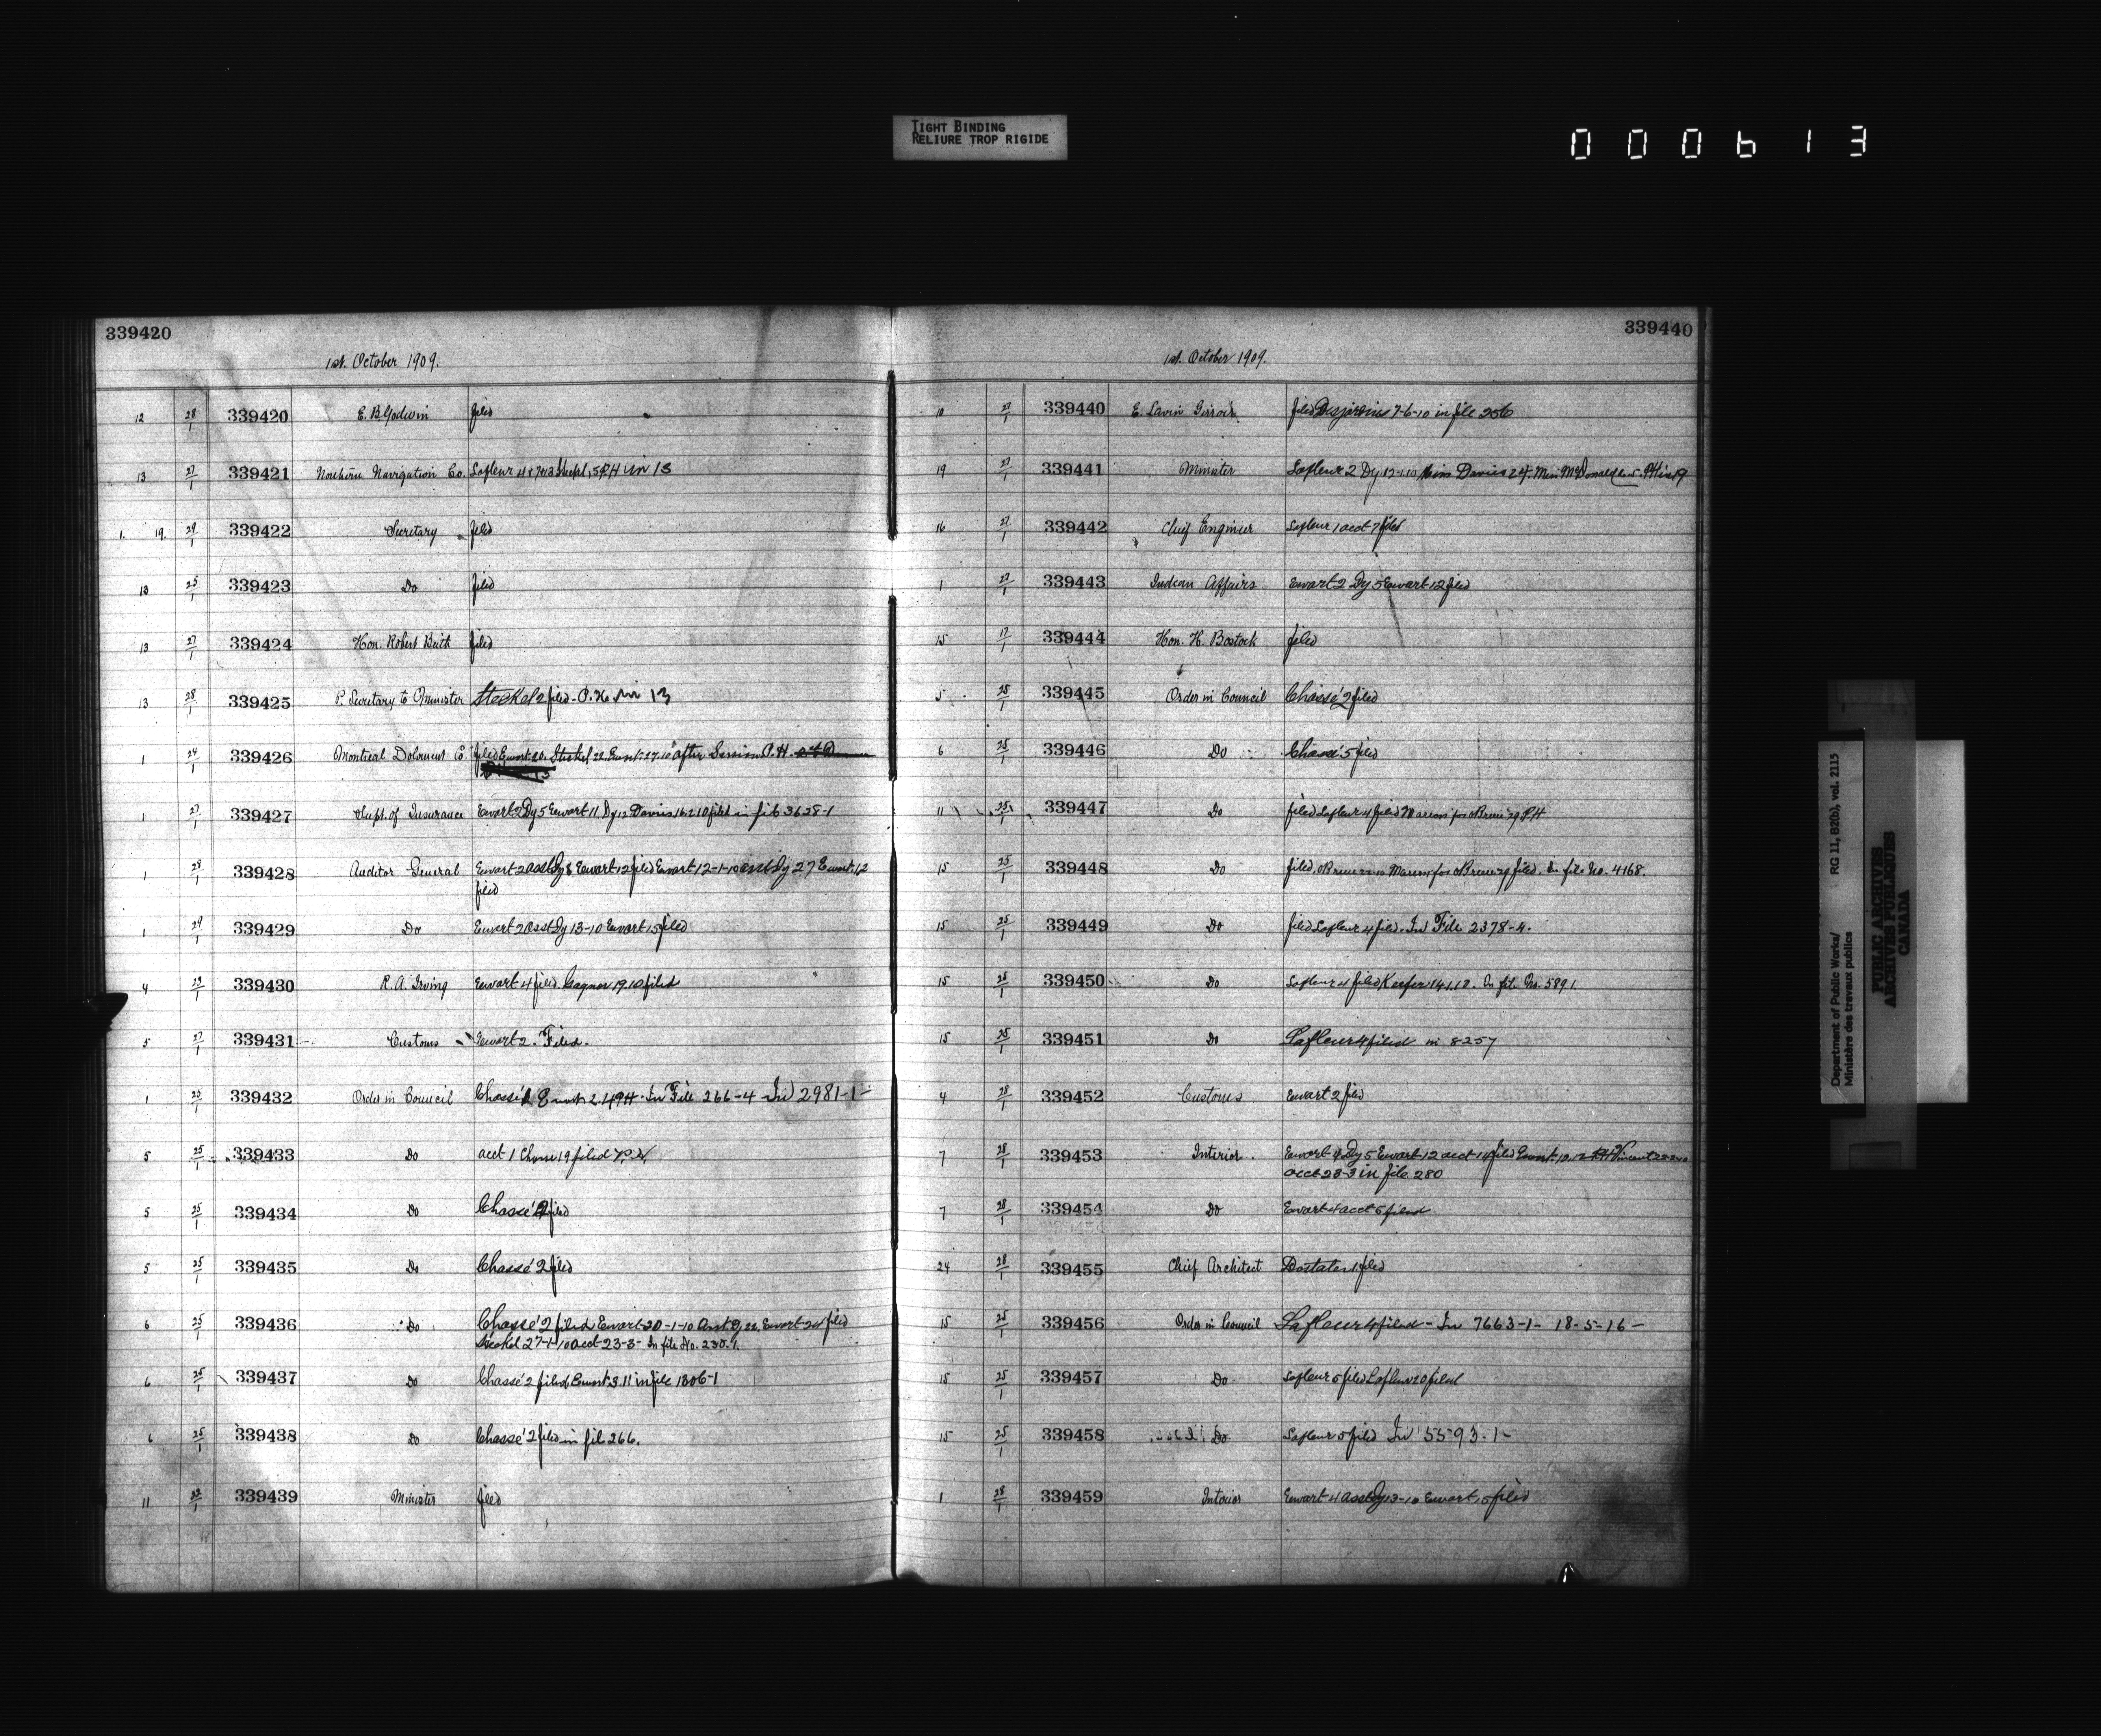 TIGHT BINDING
RELIURE TROP RIGIDE
000613
339420
1st. October 1909.
12 28/1 339420 E. B. Godwin filed
13 27/1 339421 Northern Navigation Co. Lafleur 4 P.H in 13
1. 19. 29/1 339422 Secretary filed
13 25/1 339423 Do filed
13 27/1 339424 Hon. Robert Beith filed
13 28/1 339425 P. Secretary to Minister Steckel 2 filed - P.H. in 13
1 24/1 339426 Montreal Co. filed Ewart 20. Steckel 22. Ewart 27-10 after Session P.H.
1 27/1 339427 Supt. of Insurance Ewart 2 Dy 5 Ewart 11 Dy 12 Davis 16.2.10 filed in file 3628-1
1 28/1 339428 Auditor General Ewart 2 asst Dy 8 Ewart 12 filed Ewart 12-1-10 asst Dy 27 Ewart 12
filed
1 24/1 339429 Do Ewart 2 asst Dy 13-10 Ewart 15 filed
4 23/1 339430 R. A. Irving Ewart 4 filed. Gagnon 19.10 filed
5 27/1 339431 Customs Ewart 2. Filed.
1 25/1 339432 Order in Council Chassé In File 266-4 In 2981-1-
5 25/1 339433 Do acct 1 Chasse 19 filed
5 25/1 339434 Do Chassé 2 filed
5 25/1 339435 Do Chassé 2 filed
6 25/1 339436 Do Chassé 2 filed Ewart 20-1-10 Asst Dy 22. Ewart 24 filed
Steckel 27-1-10 acct 23-3- In file No. 230-1.
6 25/1 339437 Do Chassé 2 filed Ewart 3.11 in file 1306-1
6 25/1 339438 Do Chassé 2 filed in fil 266.
11 339439 Minister filed
339440
1st. October 1909.
10 27/1 339440 E. Lavin Girroir filed Desjardins 7-6-10 in file 256
19 27/1 339441 Minister Lafleur 2 Dy Davis 24. McDonald
16 27/1 339442 Chief Engineer Lafleur 1 acct 7 filed
1 27/1 339443 Indian Affairs Ewart 2 Dy 5 Ewart 12 filed
15 17/1 339444 Hon. H. Bostock filed
5 25/1 339445 Order in Council Chassé 2 filed
6 25/1 339446 Do Chassé 5 filed
11 25/1 339447 Do filed Lafleur 4 filed P.H
15 25/1 339448 Do filed. filed. In file No. 4168.
15 25/1 339449 Do filed Lafleur 4 filed. In File 2378-4.
15 25/1 339450 Do Lafleur 4 filed Keefer In file No. 5891
15 25/1 339451 Do Lafleur 4 filed in 8257
4 28/1 339452 Customs Ewart 2 filed
7 28/1 339453 Interior. Ewart 4 Dy 5 Ewart 12 acct 14 filed Ewart
acct 23-3 in file 280
7 28/1 339454 Do Ewart 4 acct 5 filed
24 28/1 339455 Chief Architect filed
15 25/1 339456 Order in Council Lafleur 4 filed - In 7663-1- 18-5-16-
15 25/1 339457 Do Lafleur 5 filed Lafleur 20 filed
15 25/1 339458 Do Lafleur 5 filed In 5593-1-
1 28/1 339459 Interior Ewart 4 asst Dy 13-10 Ewart 15 filed
Department of Public Works/ RG 11, B2(b), vol. 2115
Ministère des travaux publics
PUBLIC ARCHIVES
ARCHIVES PUBLIQUES
CANADA